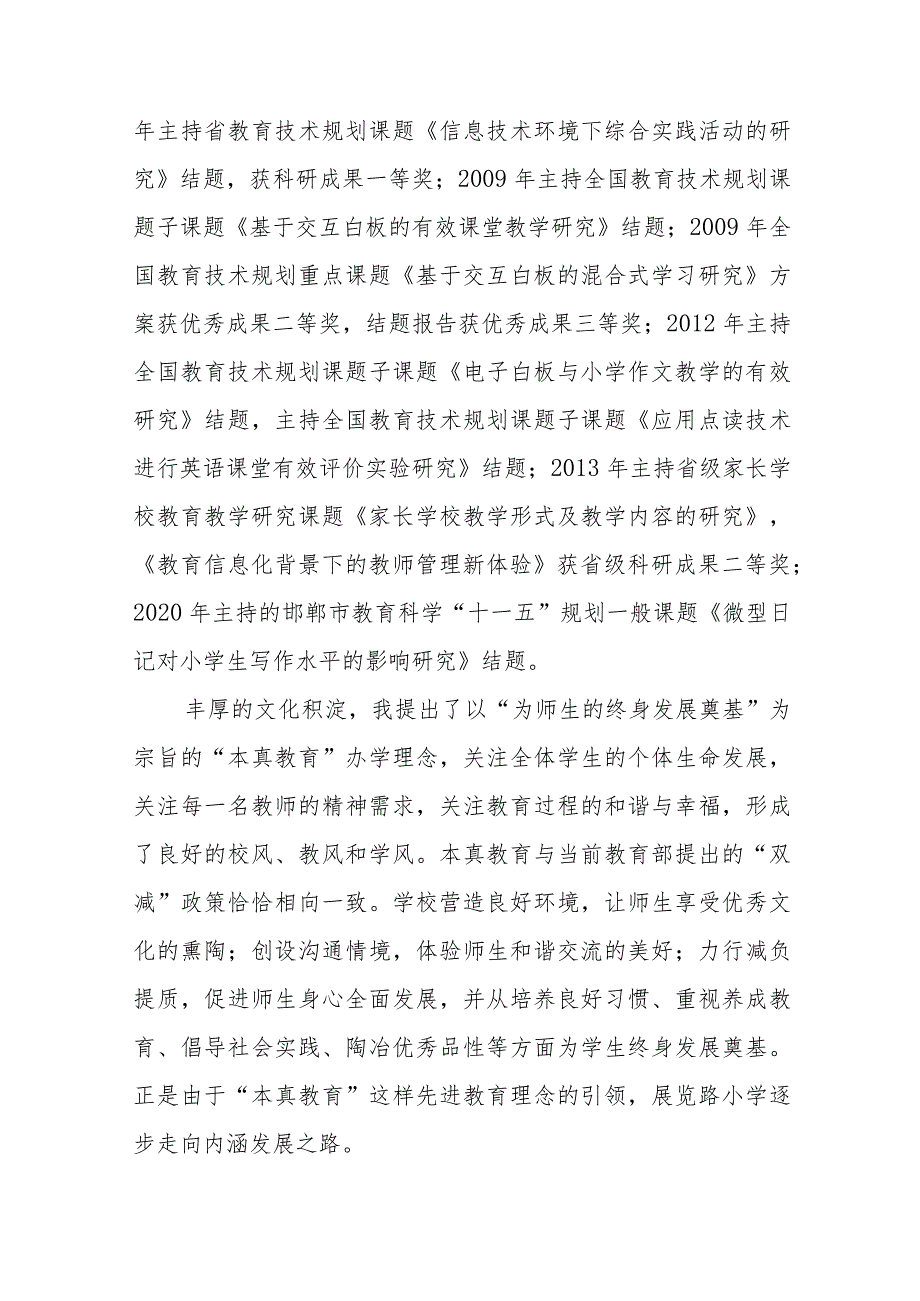 年主持省教育技术规划课题《信息技术环境下综合实践活动的研
究》结题，获科研成果一等奖；2009 年主持全国教育技术规划课
题子课题《基于交互白板的有效课堂教学研究》结题；2009 年全
国教育技术规划重点课题《基于交互白板的混合式学习研究》方
案获优秀成果二等奖，结题报告获优秀成果三等奖；2012 年主持
全国教育技术规划课题子课题《电子白板与小学作文教学的有效
研究》结题，主持全国教育技术规划课题子课题《应用点读技术
进行英语课堂有效评价实验研究》结题；2013 年主持省级家长学
校教育教学研究课题《家长学校教学形式及教学内容的研究》，
《教育信息化背景下的教师管理新体验》获省级科研成果二等奖；
2020 年主持的邯郸市教育科学“十一五”规划一般课题《微型日
记对小学生写作水平的影响研究》结题。
丰厚的文化积淀，我提出了以“为师生的终身发展奠基”为
宗旨的“本真教育”办学理念，关注全体学生的个体生命发展，
关注每一名教师的精神需求，关注教育过程的和谐与幸福，形成
了良好的校风、教风和学风。本真教育与当前教育部提出的“双
减”政策恰恰相向一致。学校营造良好环境，让师生享受优秀文
化的熏陶；创设沟通情境，体验师生和谐交流的美好；力行减负
提质，促进师生身心全面发展，并从培养良好习惯、重视养成教
育、倡导社会实践、陶冶优秀品性等方面为学生终身发展奠基。
正是由于“本真教育”这样先进教育理念的引领，展览路小学逐
步走向内涵发展之路。